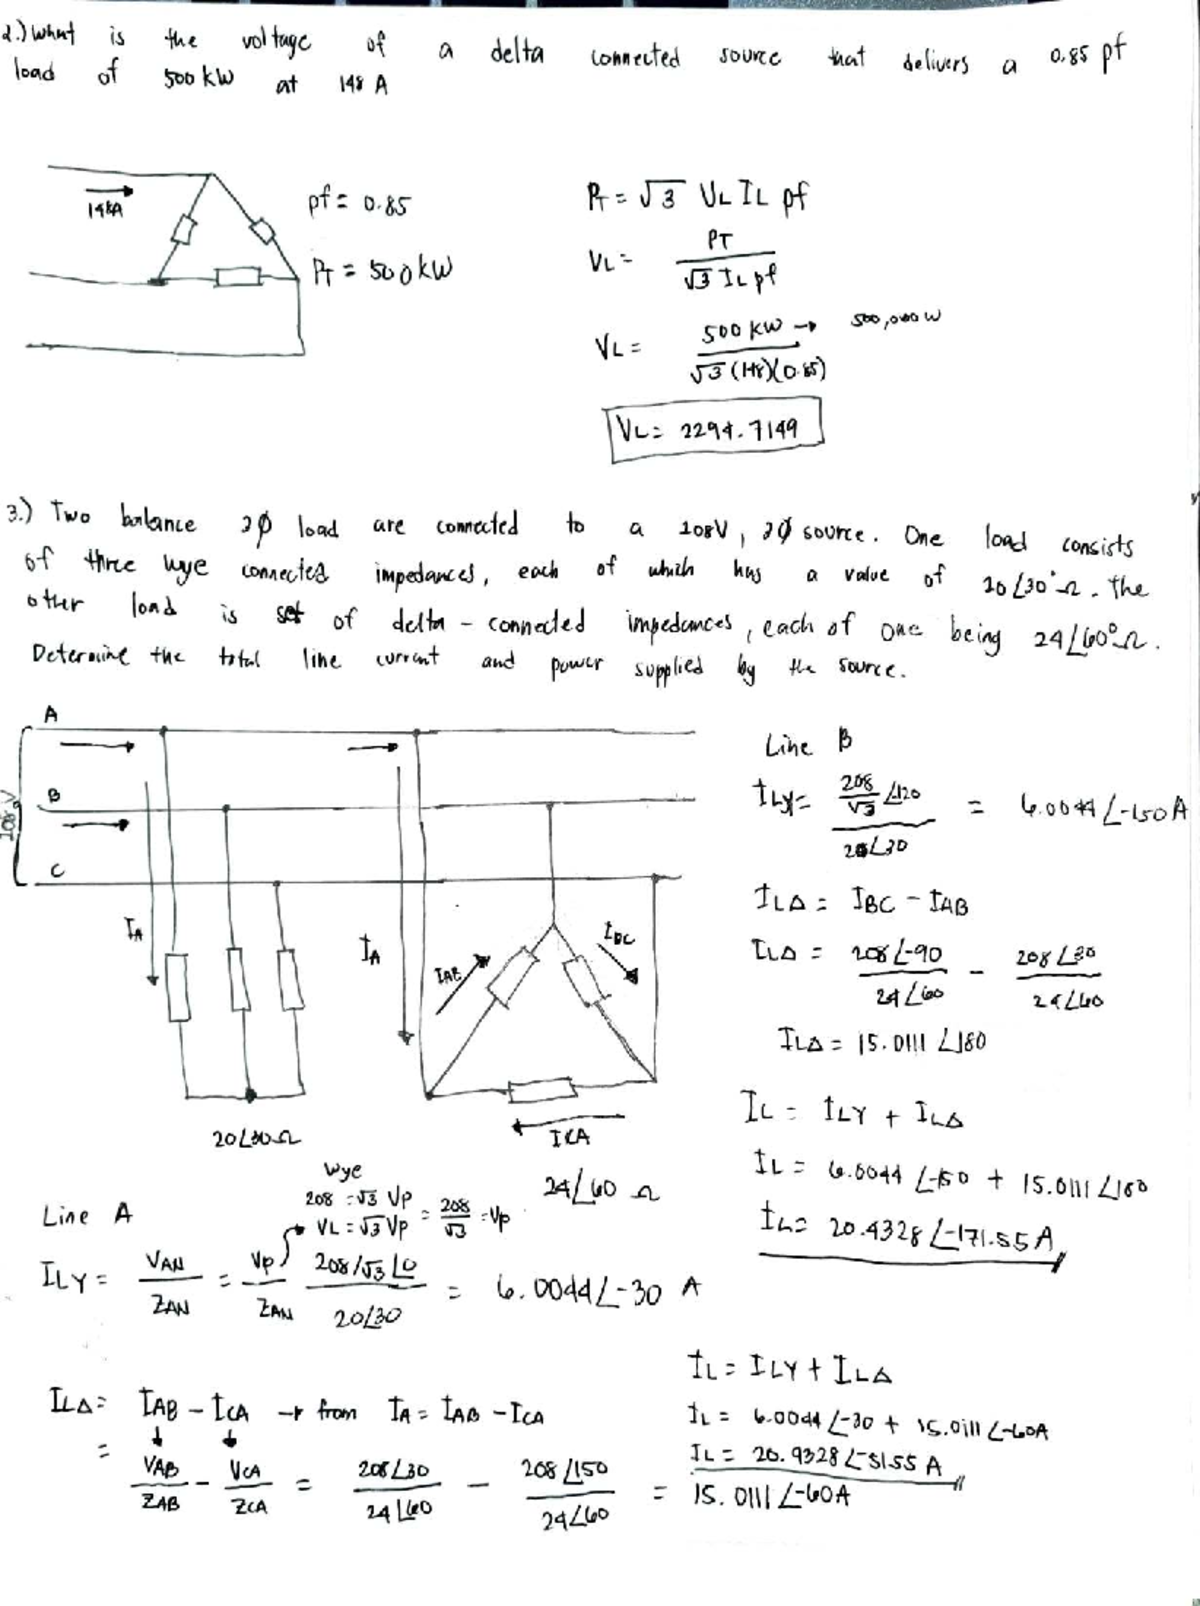 2.) What is the voltage of a delta connected source that delivers a 0.85 pf
load of 500 kW at 148 A
148A
pf = 0.85
PT = 500 kW
PT = √3 VL IL pf
VL = PT / √3 IL pf
VL = 500 kW → 500,000 W / √3 (148)(0.85)
VL = 2294.7149
3.) Two balance 3φ load are connected to a 208V, 3φ source. One load consists
of three wye connected impedances, each of which has a value of 20∠30° Ω. The
other load is set of delta - connected impedances, each of one being 24∠60° Ω.
Determine the total line current and power supplied by the source.
A
B
C
208 V
IA
IA
IAB
IBC
ICA
20∠30 Ω
24∠60 Ω
Line A
Wye
208 = √3 Vp
VL = √3 Vp = 208/√3 = Vp
ILY = VAN / ZAN = Vp / ZAN 208/√3∠0 / 20∠30 = 6.0044∠-30 A
ILΔ = IAB - ICA → from IA = IAB - ICA
= VAB / ZAB - VCA / ZCA = 208∠30 / 24∠60 - 208∠150 / 24∠60 = 15.0111∠-60A
IL = ILY + ILΔ
IL = 6.0044∠-30 + 15.0111∠-60A
IL = 20.4328∠-51.55 A
Line B
ILY = 208/√3 ∠120 / 20∠30 = 6.0044∠-150A
ILΔ = IBC - IAB
ILΔ = 208∠-90 / 24∠60 - 208∠30 / 24∠60
ILΔ = 15.0111∠180
IL = ILY + ILΔ
IL = 6.0044∠-150 + 15.0111∠180
IL = 20.4328∠-171.55A